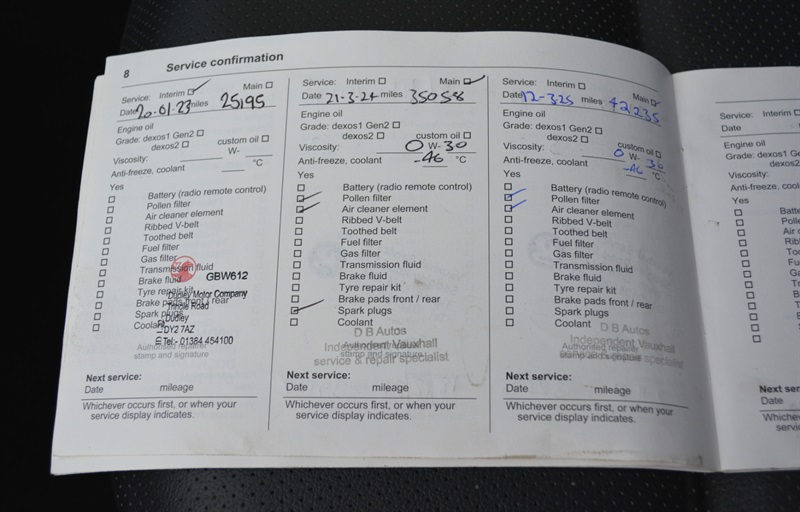 8 Service confirmation
Service: Interim Main
Date 20-01-23 miles 25195
Engine oil
Grade: dexos1 Gen2
dexos2 custom oil
Viscosity: W-
Anti-freeze, coolant °C
Yes
Battery (radio remote control)
Pollen filter
Air cleaner element
Ribbed V-belt
Toothed belt
Fuel filter
Gas filter
Transmission fluid
Brake fluid
Tyre repair kit
Brake pads front / rear
Spark plugs
Coolant
GBW612
Dudley Motor Company
Dudley
DY2 7AZ
Tel:- 01384 454100
Authorised repairer
stamp and signature
Next service:
Date mileage
Whichever occurs first, or when your
service display indicates.
Service: Interim Main
Date 21-3-24 miles 35058
Engine oil
Grade: dexos1 Gen2
dexos2 custom oil
Viscosity: 0 W-30
Anti-freeze, coolant -46 °C
Yes
Battery (radio remote control)
Pollen filter
Air cleaner element
Ribbed V-belt
Toothed belt
Fuel filter
Gas filter
Transmission fluid
Brake fluid
Tyre repair kit
Brake pads front / rear
Spark plugs
Coolant
D B Autos
Independent Vauxhall
service & repair specialist
stamp and signature
Next service:
Date mileage
Whichever occurs first, or when your
service display indicates.
Service: Interim Main
Date 12-3-25 miles 42235
Engine oil
Grade: dexos1 Gen2
dexos2 custom oil
Viscosity: 0 W-30
Anti-freeze, coolant -46 °C
Yes
Battery (radio remote control)
Pollen filter
Air cleaner element
Ribbed V-belt
Toothed belt
Fuel filter
Gas filter
Transmission fluid
Brake fluid
Tyre repair kit
Brake pads front / rear
Spark plugs
Coolant
D B Autos
Independent Vauxhall
specialist
Next service:
Date mileage
Whichever occurs first, or when your
service display indicates.
Service: Interim
Date
Engine oil
Grade: dexos1 Ge
dexos2
Viscosity:
Anti-freeze, cool
Yes
Batte
Polle
Air c
Ribb
Too
Fu
Ga
Tr
Br
Ty
Br
S
C
Next ser
Date
Whiche
servi